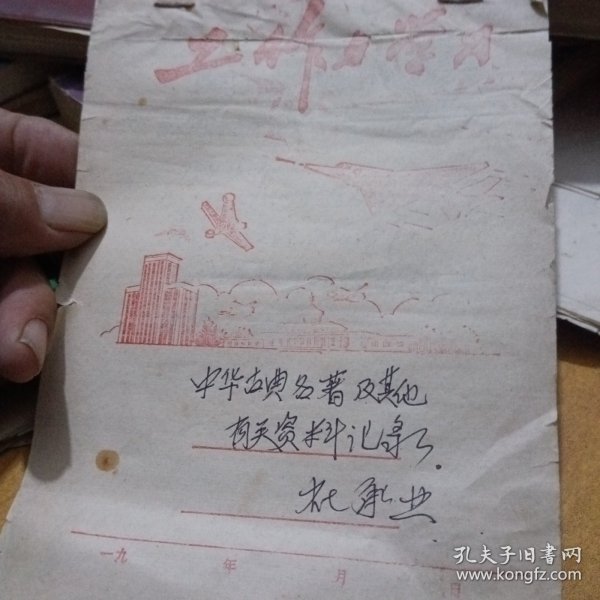 工作与学习
中华古典名著及其他
有关资料记录
承业
一九 年 月 日
孔夫子旧书网
www.kongfz.com